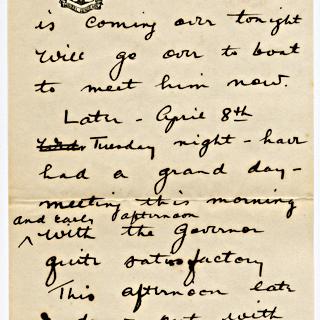 is coming over tonight
will go over to boat
to meet him now.
Later - April 8th
Tuesday night - have
had a grand day -
meeting this morning
and early afternoon
with the Governor
quite satisfactory
This afternoon late
out with